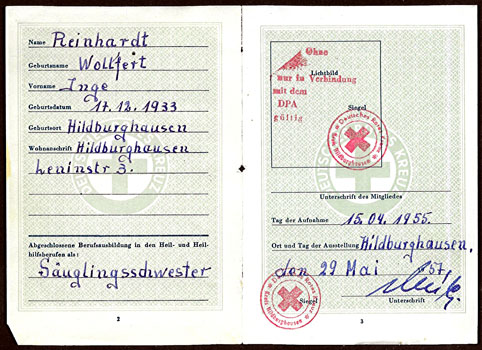 Name Reinhardt
Geburtsname Wolfert
Vorname Inge
Geburtsdatum 17.12.1933
Geburtsort Hildburghausen
Wohnanschrift Hildburghausen
Leninstr 3.
Abgeschlossene Berufsausbildung in den Heil- und Heil-
hilfsberufen als:
Säuglingsschwester
2
Ohne
Lichtbild
nur in Verbindung
mit dem
DPA
gültig
Siegel
Deutsches Rotes Kreuz
Kreis Hildburghausen
Unterschrift des Mitgliedes
Tag der Aufnahme 15.04.1955.
Ort und Tag der Ausstellung Hildburghausen,
den 29 Mai 57.
Siegel
Unterschrift
3